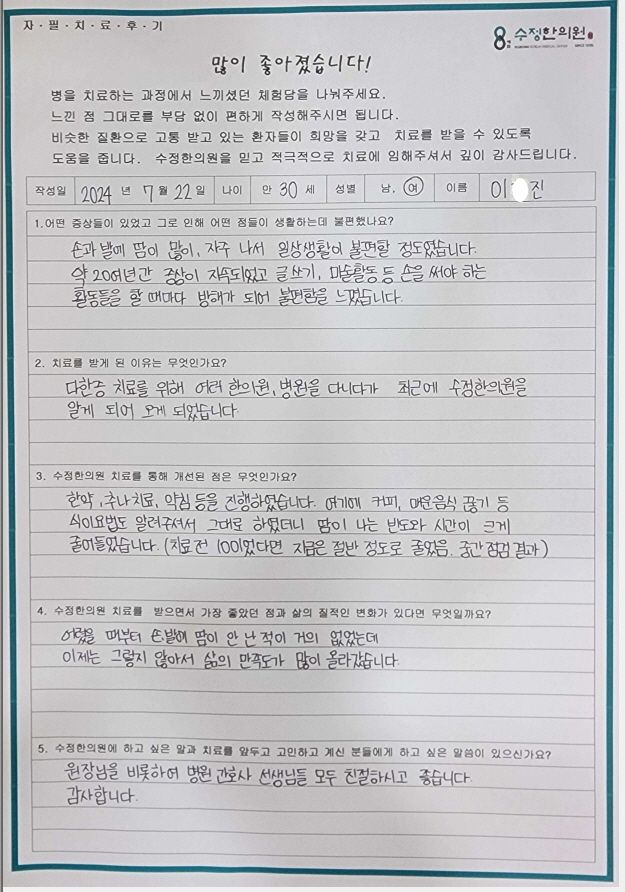 자·필·치·료·후·기
수정한의원
SINCE 1976
많이 좋아졌습니다!
병을 치료하는 과정에서 느끼셨던 체험담을 나눠주세요.
느낀 점 그대로를 부담 없이 편하게 작성해주시면 됩니다.
비슷한 질환으로 고통 받고 있는 환자들이 희망을 갖고 치료를 받을 수 있도록
도움을 줍니다. 수정한의원을 믿고 적극적으로 치료에 임해주셔서 깊이 감사드립니다.
작성일 2024 년 7 월 22 일 나이 만 30 세 성별 남, 여 이름 이 진
1.어떤 증상들이 있었고 그로 인해 어떤 점들이 생활하는데 불편했나요?
손과 발에 땀이 많이, 자주 나서 일상생활이 불편할 정도였습니다.
약 20여년간 증상이 지속되었고 글쓰기, 미술활동 등 손을 써야 하는
활동들을 할 때마다 방해가 되어 불편함을 느꼈습니다.
2. 치료를 받게 된 이유는 무엇인가요?
다한증 치료를 위해 여러 한의원, 병원을 다니다가 최근에 수정한의원을
알게 되어 오게 되었습니다.
3. 수정한의원 치료를 통해 개선된 점은 무엇인가요?
한약, 추나치료, 약침 등을 진행하였습니다. 여기에 커피, 매운음식 끊기 등
식이요법도 알려주셔서 그대로 하였더니 땀이 나는 빈도와 시간이 크게
줄어들었습니다. (치료 전 100이었다면 지금은 절반 정도로 줄었음. 중간점검 결과)
4. 수정한의원 치료를 받으면서 가장 좋았던 점과 삶의 질적인 변화가 있다면 무엇일까요?
어렸을 때부터 손발에 땀이 안 난 적이 거의 없었는데
이제는 그렇지 않아서 삶의 만족도가 많이 올라갔습니다.
5. 수정한의원에 하고 싶은 말과 치료를 앞두고 고민하고 계신 분들에게 하고 싶은 말씀이 있으신가요?
원장님을 비롯하여 병원 간호사 선생님들 모두 친절하시고 좋습니다.
감사합니다.